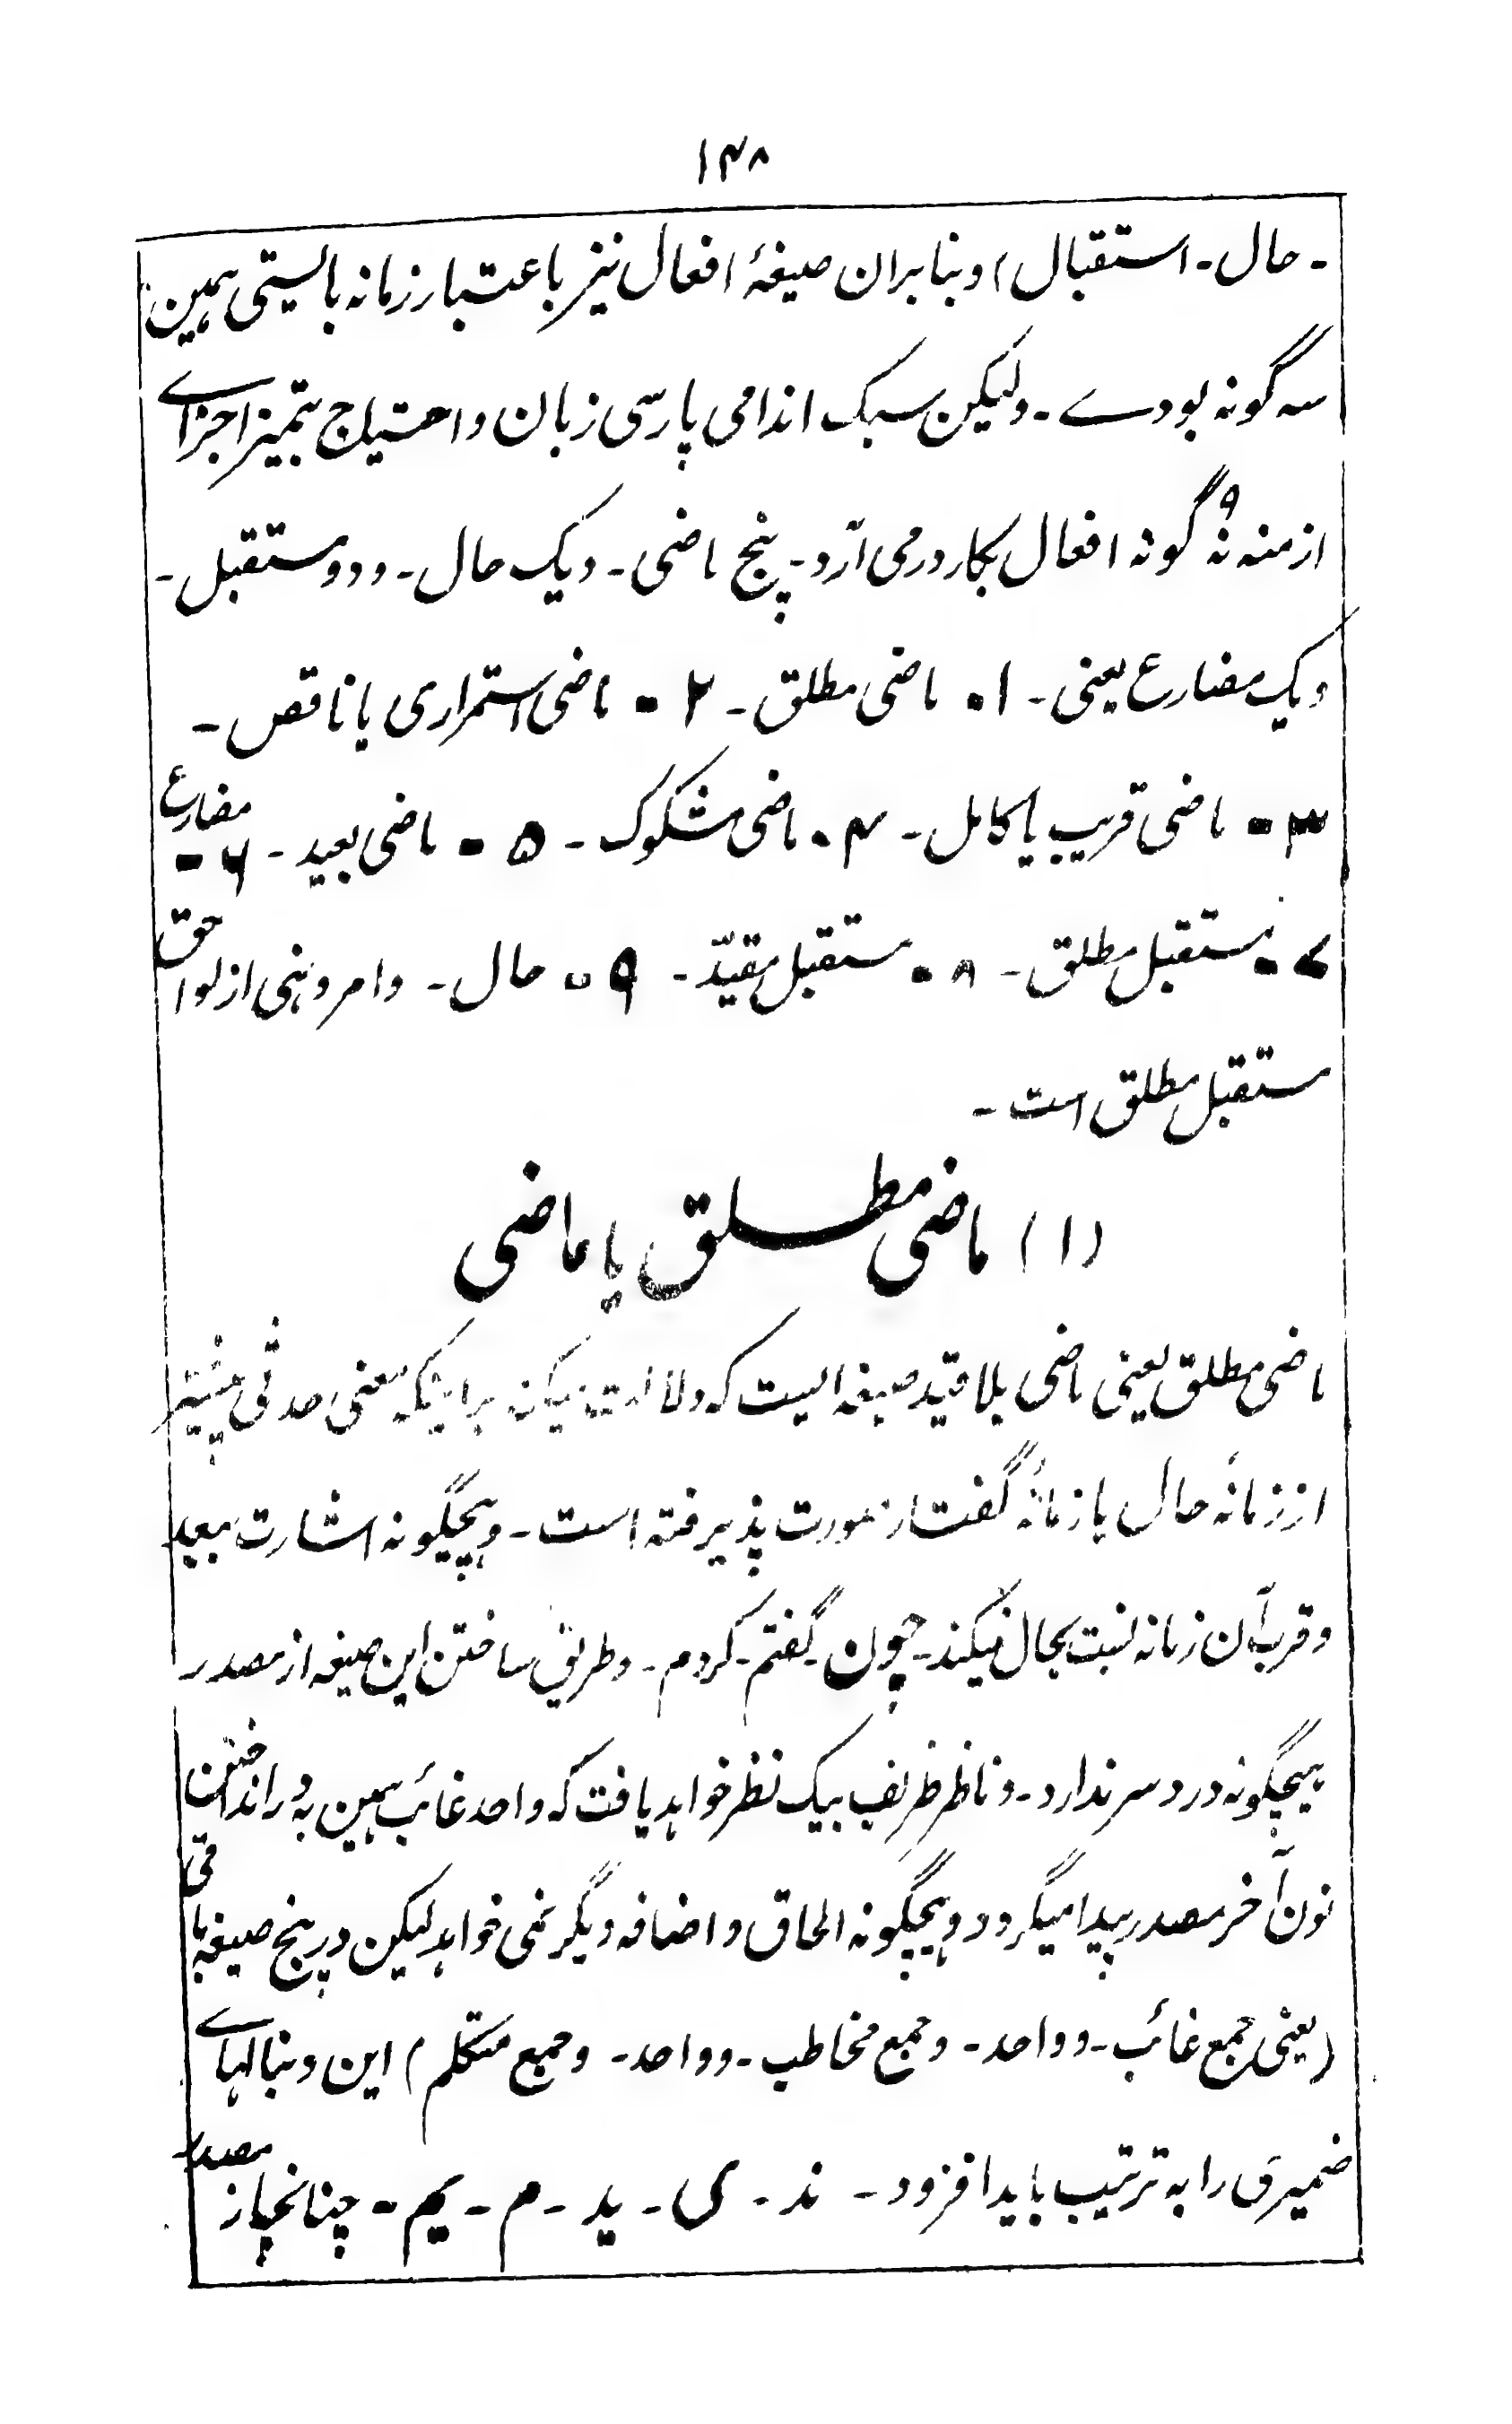 ۱۴۸
- حال - استقبال) و بنابران صیغهٔ افعال نیز باعتبار زمانه بالیستی همین
سه گونه بودے - ولیکن سبک اندامی پارسی زبان و احتیاج بتمیز اجزاے
ازمنه نُه ۹ گونه افعال بکار درمی آرد - پنج ماضی - و یک حال - و دو مستقبل -
و یک مضارع یعنی - ۱ - ماضی مطلق - ۲ - ماضی استمراری یا ناقص -
۳ - ماضی قریب یا کامل - ۴ - ماضی مشکوک - ۵ - ماضی بعید - ۶ - مضارع
۷ - مستقبل مطلق - ۸ - مستقبل مقیّد - ۹ - حال - و امر و نهی از لواحق
مستقبل مطلق است -
(۱) ماضی مطلق یا ماضی
ماضی مطلق یعنی ماضی بلا قید صیغه ایست که دلالت میکند براینکه معنی حدثی پیشتر
از زمانهٔ حال یا زمانهٔ گفتار صورت پذیرفته است - و هیچگونه اشارت ببعد
و قرب آن زمانه نسبت بحال نمیکند - چون - گفتم - کردم - و طریق ساختن این صیغه از مصدر
هیچگونه درد سر ندارد - و ناظر ظریف بیک نظر خواهد یافت که واحد غائب همین به دور انداختن
نون آخر مصدر پیدا میگردد و هیچگونه الحاق و اضافه دیگر نمی خواهد لیکن در پنج صیغه باقی
(یعنی جمع غائب - و واحد - و جمع مخاطب - و واحد - و جمع متکلم) این دنبالهاے
ضمیری را به ترتیب باید افزود - ند - ی - ید - م - یم - چنانچه از مصدر